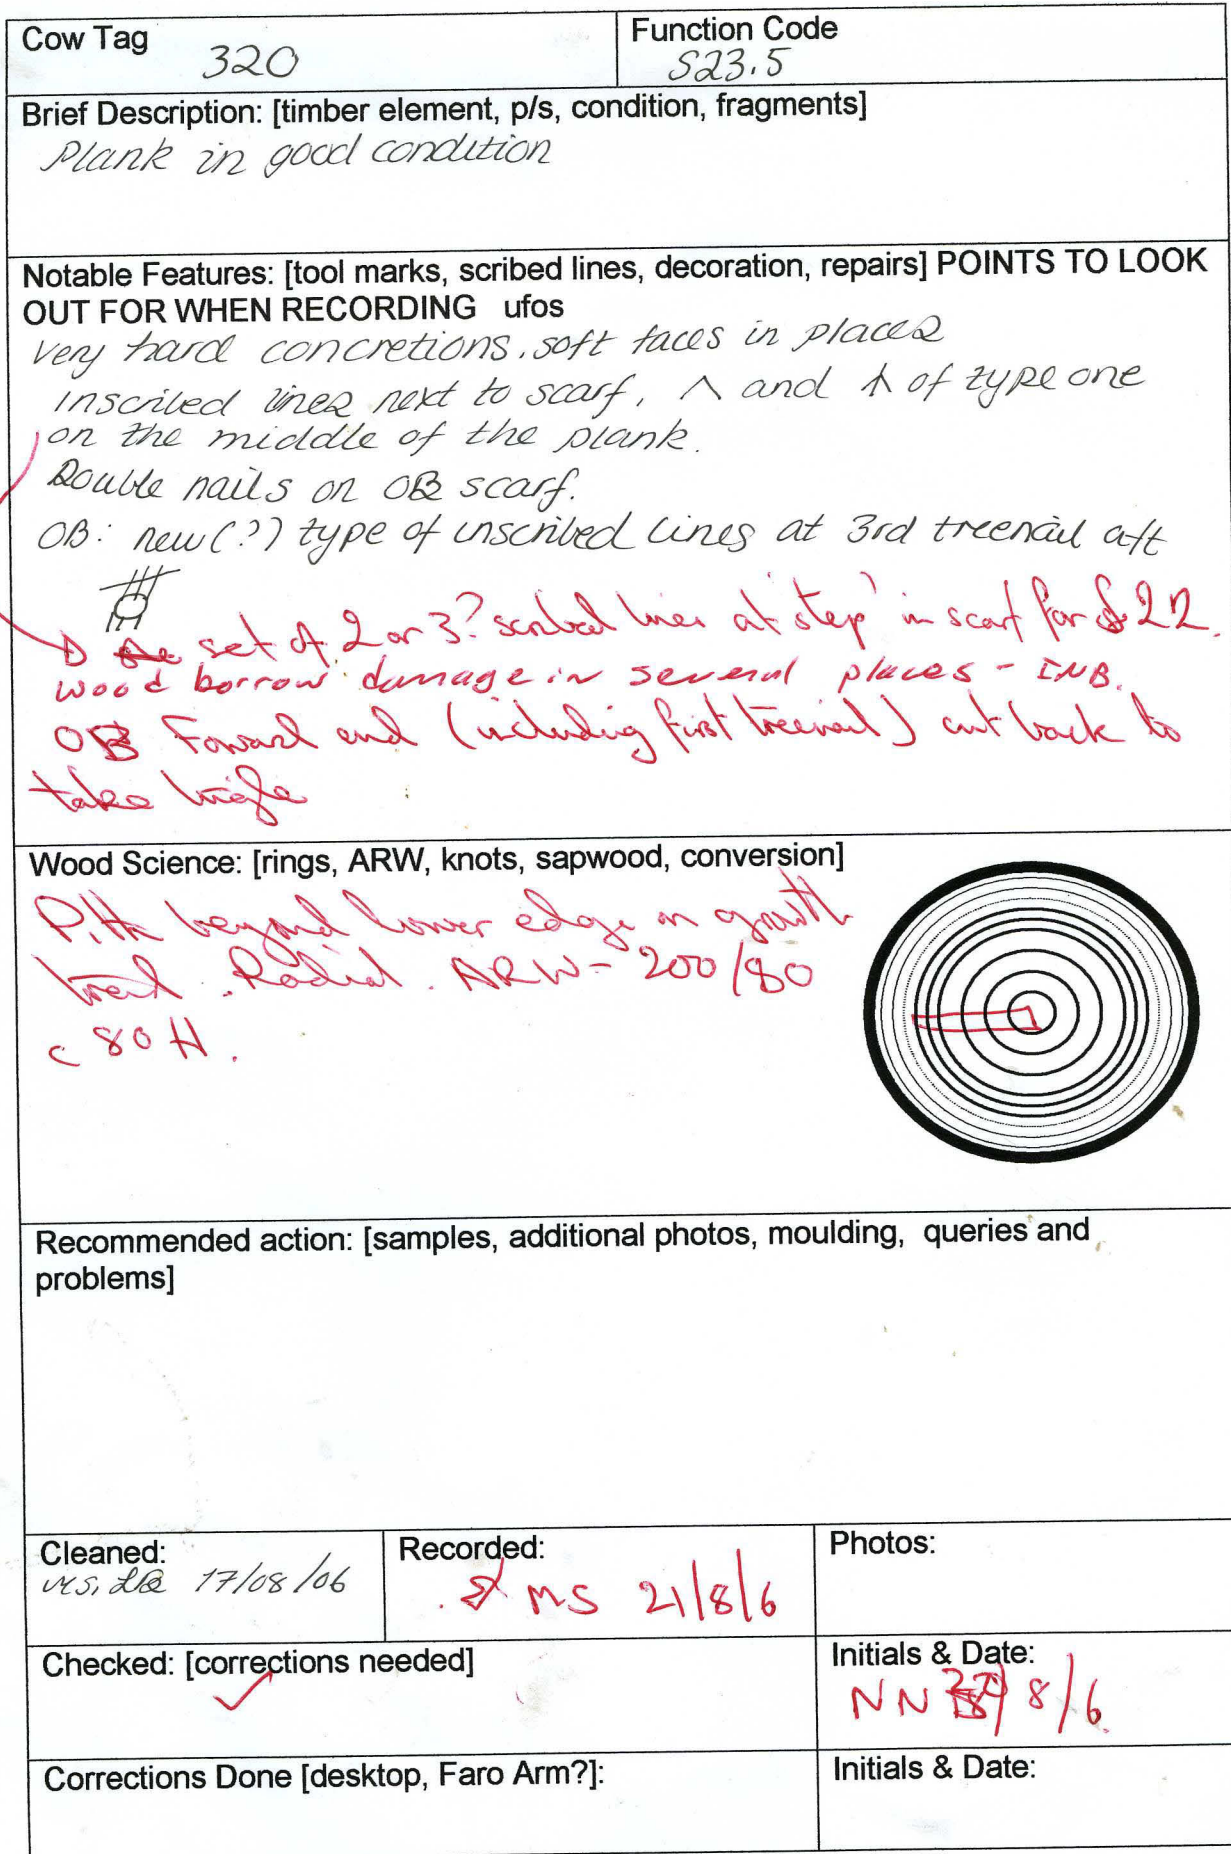 Cow Tag
320
Function Code
S23.5
Brief Description: [timber element, p/s, condition, fragments]
Plank in good condition
Notable Features: [tool marks, scribed lines, decoration, repairs] POINTS TO LOOK
OUT FOR WHEN RECORDING ufos
Very hard concretions. soft faces in places
inscribed lines next to scarf, and of type one
on the middle of the plank.
Double nails on OB scarf.
OB: new(?) type of inscribed lines at 3rd treenail aft
set of 2 or 3? scribed lines at 'step' in scarf for
wood borrow damage in several places - INB.
OB Forward end (including first treenail) cut back to
take
Wood Science: [rings, ARW, knots, sapwood, conversion]
Pith beyond lower edge on growth
trend. Radial. ARW- 200/80
c 80 H.
Recommended action: [samples, additional photos, moulding, queries and
problems]
Cleaned:
17/08/06
Recorded:
MS 21/8/6
Photos:
Checked: [corrections needed]
Initials & Date:
NN 8/6
Corrections Done [desktop, Faro Arm?]:
Initials & Date: